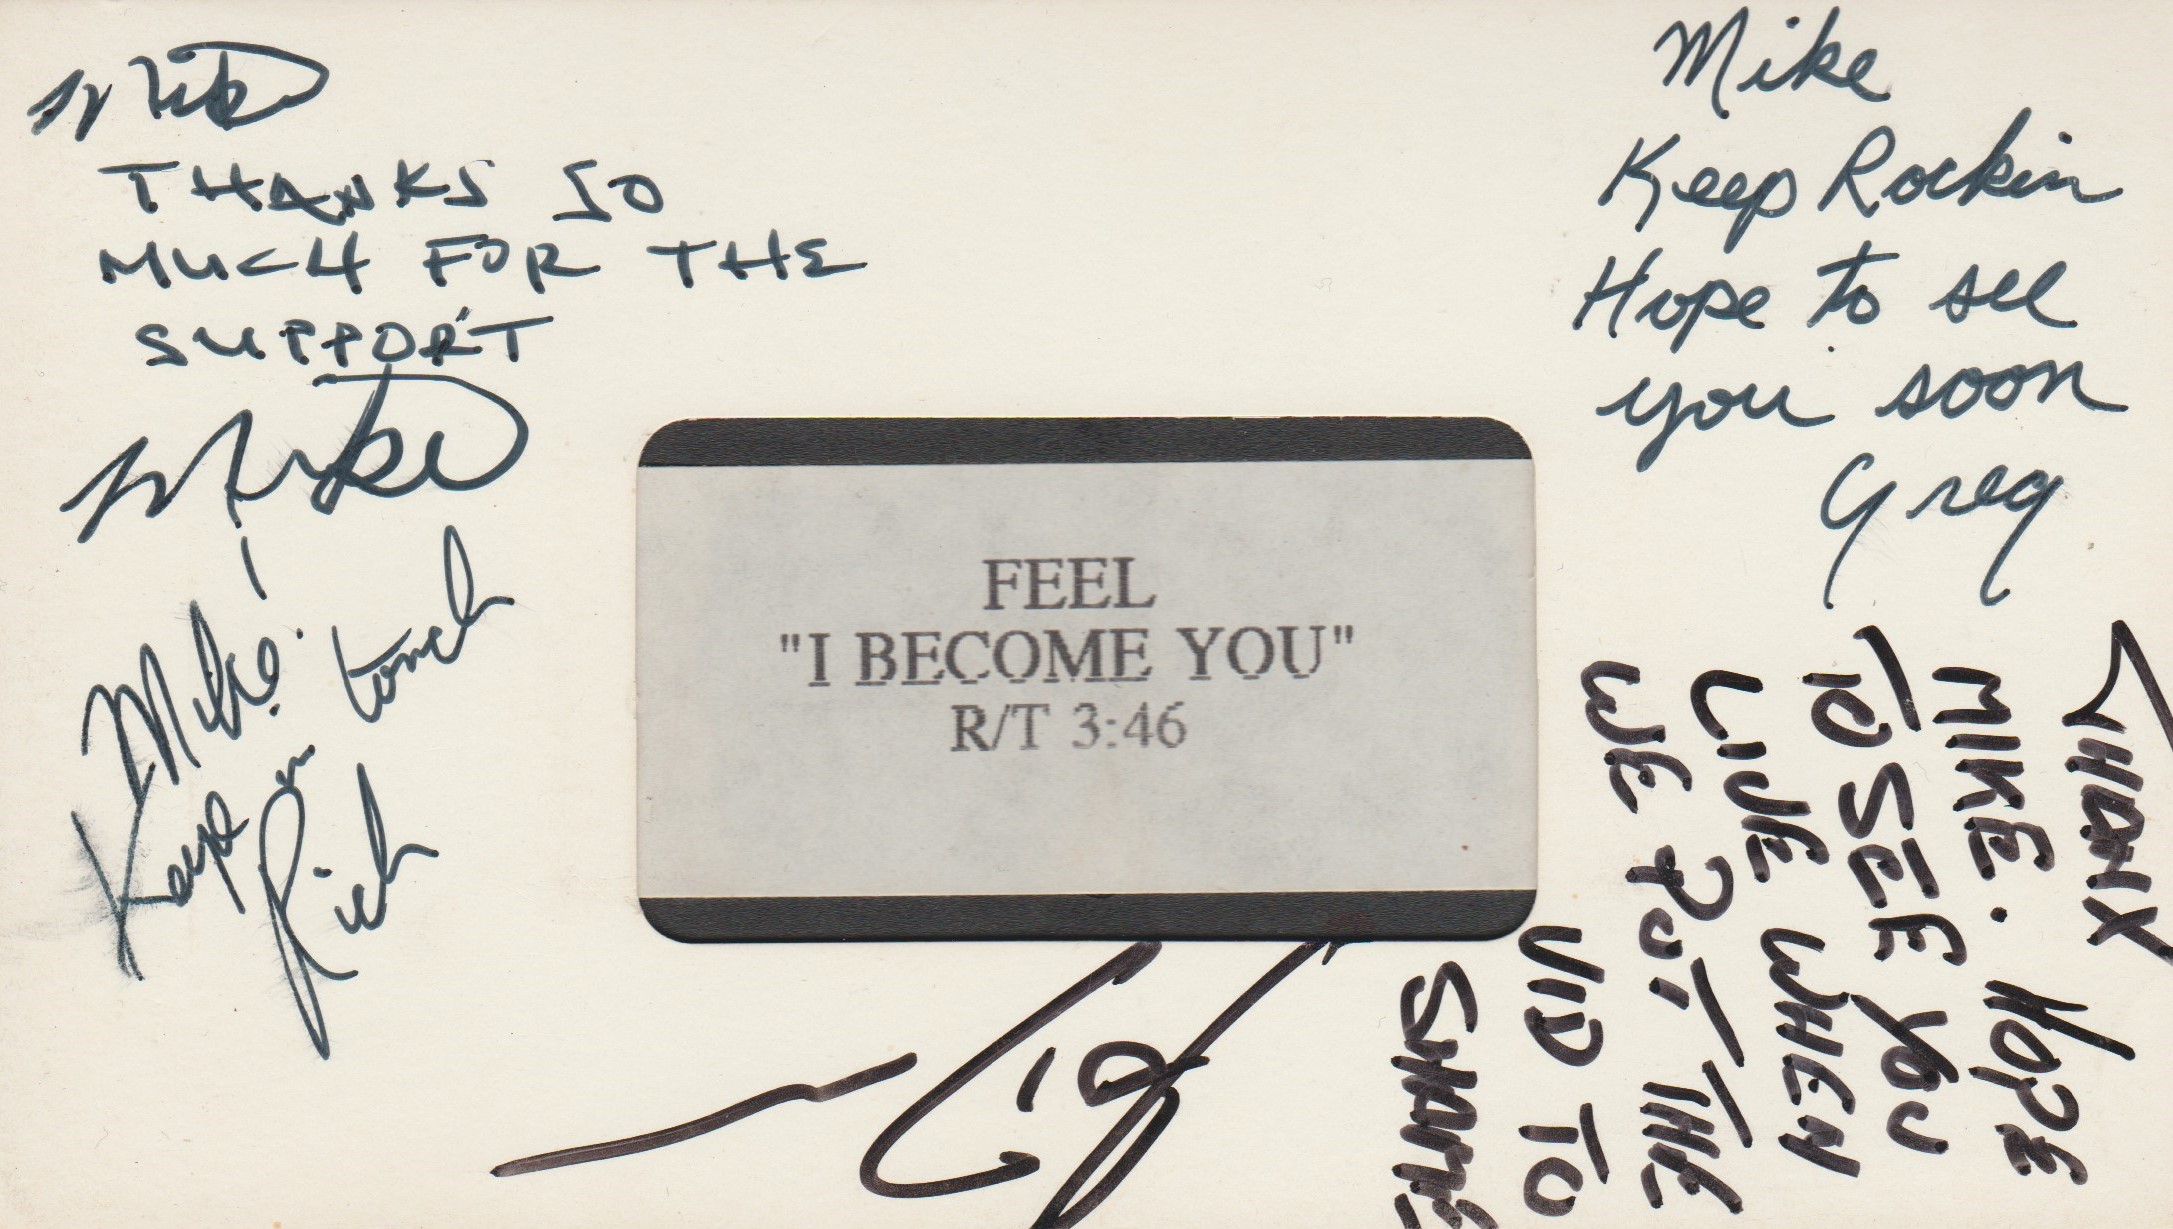 Mike
THANKS SO
MUCH FOR THE
SUPPORT
Mike
Mike:
Keep in touch
Rich
Mike
Keep Rockin
Hope to see
you soon
Greg
FEEL
"I BECOME YOU"
R/T 3:46
THANX
MIKE. HOPE
TO SEE YOU
LIVE WHEN
WE PUT THE
VID TO
SHAME